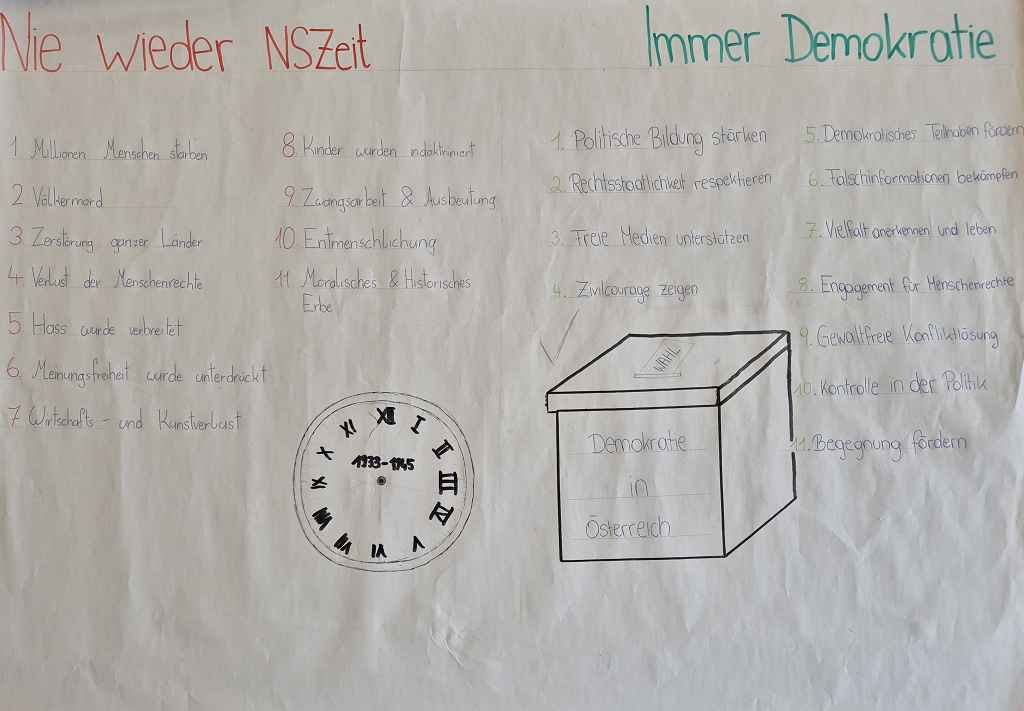 Nie wieder NSZeit
1 Millionen Menschen starben
2 Völkermord
3 Zerstörung ganzer Länder
4. Verlust der Menschenrechte
5. Hass wurde verbreitet
6. Meinungsfreiheit wurde unterdrückt
7. Wirtschafts - und Kunstverlust
8. Kinder wurden indoktriniert
9. Zwangsarbeit & Ausbeutung
10. Entmenschlichung
11. Moralisches & Historisches
Erbe
XII I II III IV V VI VII VIII IX X XI
1933-1945
Immer Demokratie
1. Politische Bildung stärken
2. Rechtsstaatlichkeit respektieren
3. Freie Medien unterstützen
4. Zivilcourage zeigen
5. Demokratisches Teilhaben fördern
6. Falschinformationen bekämpfen
7. Vielfalt anerkennen und leben
8. Engagement für Menschenrechte
9. Gewaltfreie Konfliktlösung
10. Kontrolle in der Politik
11. Begegnung fördern
WAHL
Demokratie
in
Österreich